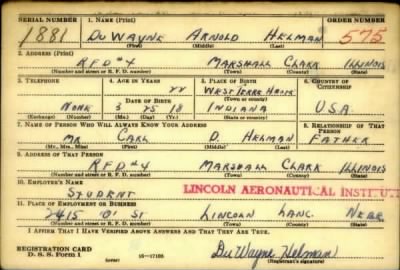 SERIAL NUMBER 1. NAME (Print) ORDER NUMBER
1881 DuWAYNE ARNOLD HELMAN 575
(First) (Middle) (Last)
2. ADDRESS (Print)
RFD #4 MARSHALL CLARK ILLINOIS
(Number and street or R. F. D. number) (Town) (County) (State)
3. TELEPHONE 4. AGE IN YEARS 5. PLACE OF BIRTH 6. COUNTRY OF CITIZENSHIP
22 WEST TERRE HAUTE
DATE OF BIRTH (Town or county)
NONE 3 25 18 INDIANA U.S.A.
(Exchange) (Number) (Mo.) (Day) (Yr.) (State or country)
7. NAME OF PERSON WHO WILL ALWAYS KNOW YOUR ADDRESS 8. RELATIONSHIP OF THAT PERSON
MR CARL D. HELMAN FATHER
(Mr., Mrs., Miss) (First) (Middle) (Last)
9. ADDRESS OF THAT PERSON
RFD #4 MARSHALL CLARK ILLINOIS
(Number and street or R. F. D. number) (Town) (County) (State)
10. EMPLOYER'S NAME
STUDENT LINCOLN AERONAUTICAL INSTITUTE
11. PLACE OF EMPLOYMENT OR BUSINESS
2415 "O" ST LINCOLN LANC. NEBR.
(Number and street or R. F. D. number) (Town) (County) (State)
I AFFIRM THAT I HAVE VERIFIED ABOVE ANSWERS AND THAT THEY ARE TRUE.
REGISTRATION CARD
D. S. S. Form 1 16—17105 DuWayne Helman
(Registrant's signature)